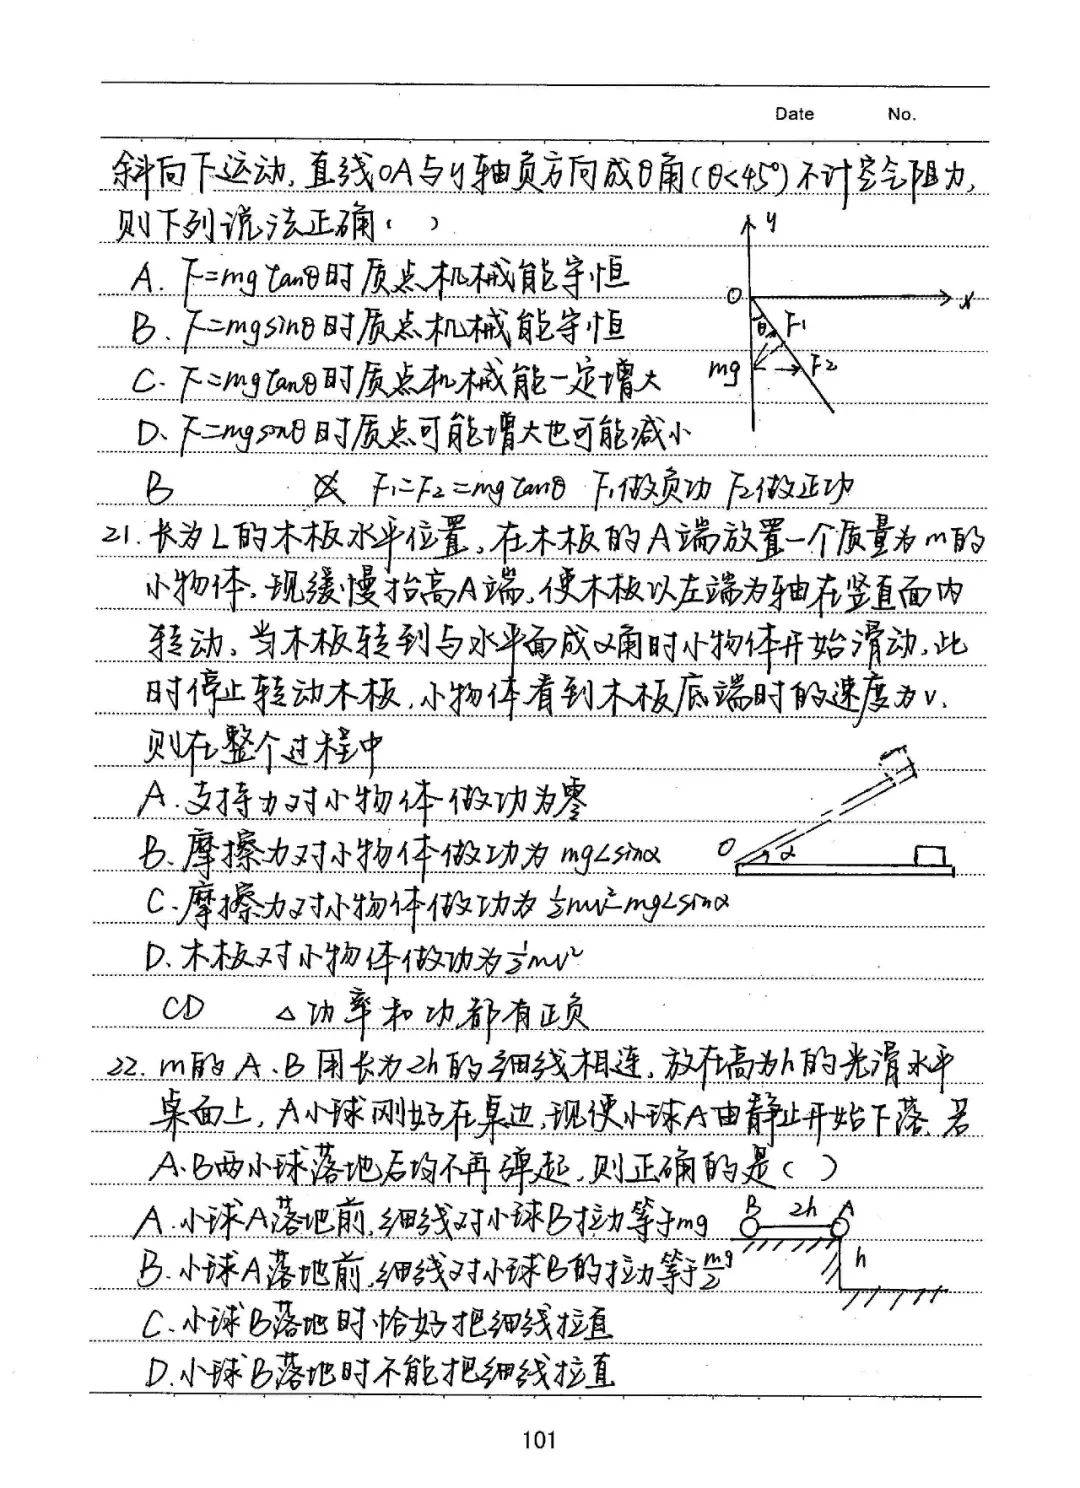 Date No.
斜向下运动,直线OA与y轴负方向成θ角(θ<45°)不计空气阻力,
则下列说法正确( )
A. F=mgtanθ时质点机械能守恒
B. F=mgsinθ时质点机械能守恒
C. F=mgtanθ时质点机械能一定增大
D. F=mgsinθ时质点可能增大也可能减小
y
O x
θ F1
mg F2
B F1=F2=mgtanθ F1做负功 F2做正功
21. 长为L的木板水平位置,在木板的A端放置一个质量为m的
小物体,现缓慢抬高A端,使木板以左端为轴在竖直面内
转动,当木板转到与水平面成α角时小物体开始滑动,此
时停止转动木板,小物体看到木板底端时的速度为v,
则在整个过程中
A. 支持力对小物体做功为零
B. 摩擦力对小物体做功为mgLsinα
C. 摩擦力对小物体做功为½mv²-mgLsinα
D. 木板对小物体做功为½mv²
O α
CD △功率和功都有正负
22. m的A、B用长为2h的细线相连,放在高为h的光滑水平
桌面上,A小球刚好在桌边,现使小球A由静止开始下落,若
A、B两小球落地后均不再弹起,则正确的是( )
A. 小球A落地前,细线对小球B拉力等于mg
B. 小球A落地前,细线对小球B的拉力等于mg/2
C. 小球B落地时恰好把细线拉直
D. 小球B落地时不能把细线拉直
B 2h A
h
101